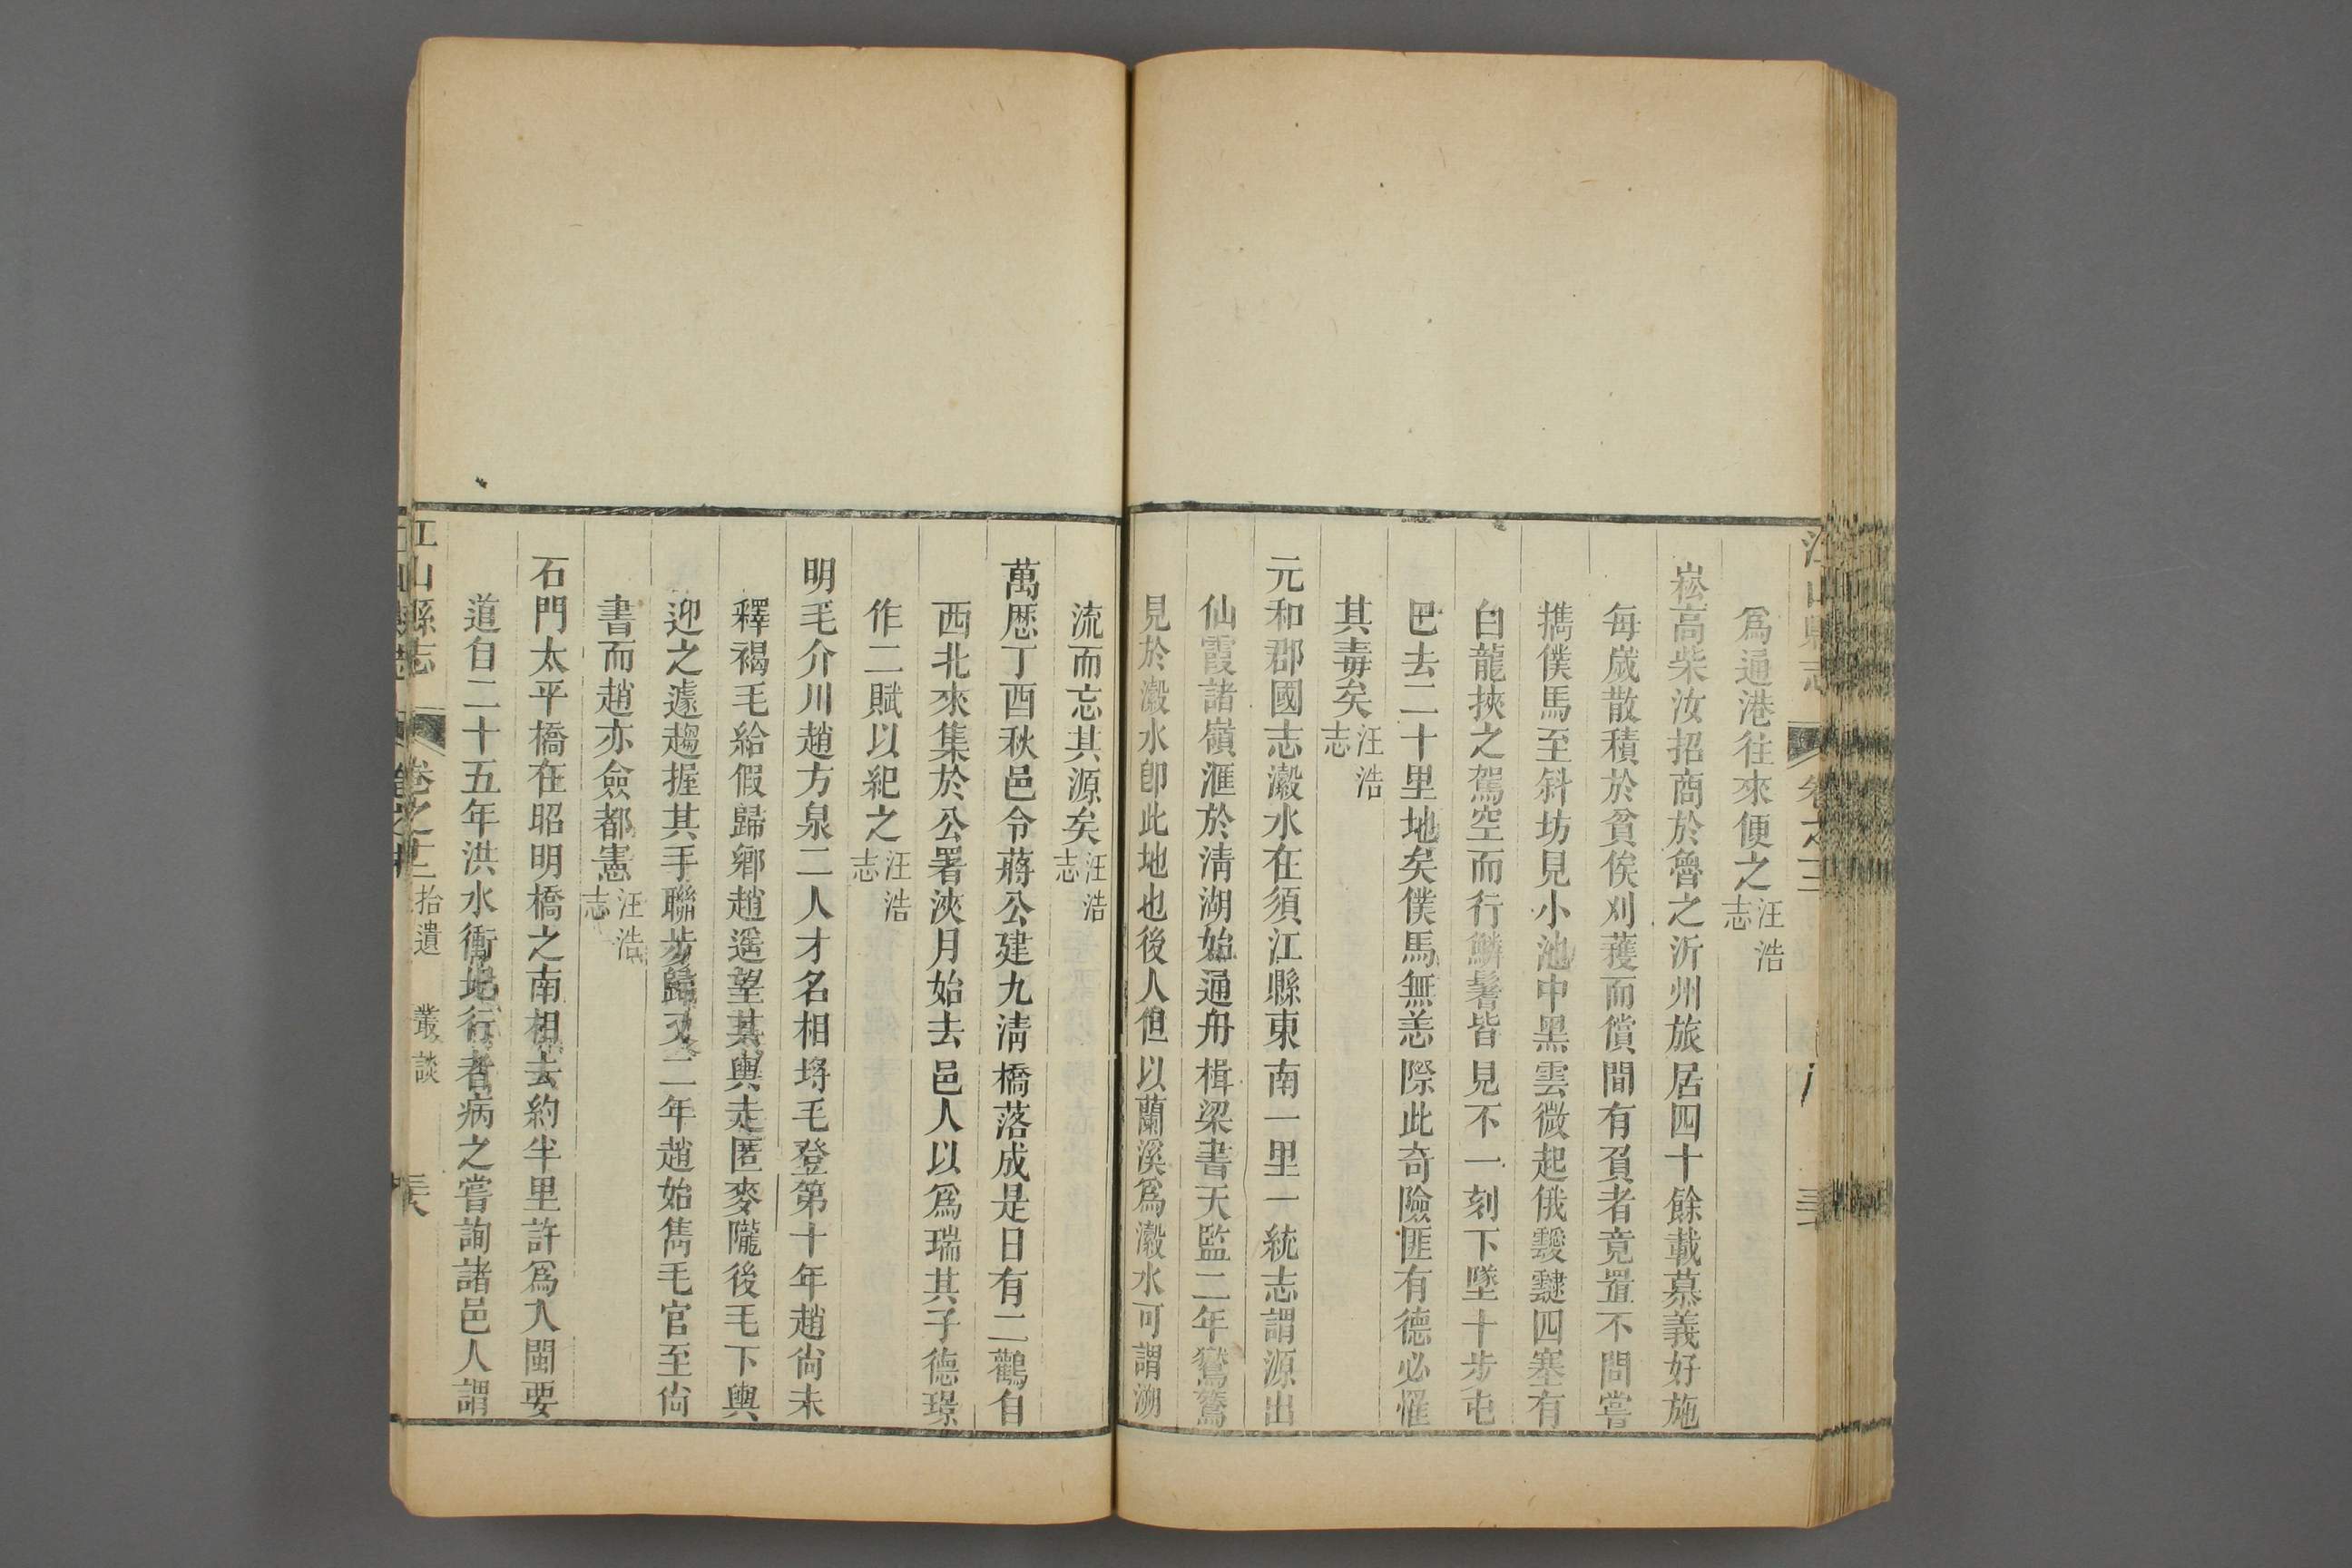 爲通港往來便之汪浩志
崧高柴汝招商於魯之沂州旅居四十餘載慕義好施
每歲散積於貧俟刈穫而償間有負者竟置不問嘗
攜僕馬至斜坊見小池中黑雲微起俄靉靆四塞有
白龍挾之駕空而行鱗鬐皆見不一刻下墜十步屯
巴去二十里地矣僕馬無恙際此奇險匪有德必罹
其毒矣汪浩志
元和郡國志瀔水在須江縣東南一里一統志謂源出
仙霞諸嶺滙於淸湖始通舟楫梁書天監二年鴛鴦
見於瀔水卽此地也後人但以蘭溪爲瀔水可謂溯
流而忘其源矣汪浩志
萬厯丁酉秋邑令蔣公建九淸橋落成是日有二鸛自
西北來集於公署浹月始去邑人以爲瑞其子德璟
作二賦以紀之汪浩志
明毛介川趙方泉二人才名相埓毛登第十年趙尙未
釋褐毛給假歸鄉趙遥望其輿走匿麥隴後毛下輿
迎之遽趨握其手聯步歸又二年趙始雋毛官至尙
書而趙亦僉都憲汪浩志
石門太平橋在昭明橋之南相去約半里許爲入閩要
道自二十五年洪水衝地行者病之嘗詢諸邑人謂
江山縣志 卷之十二 拾遺 叢談